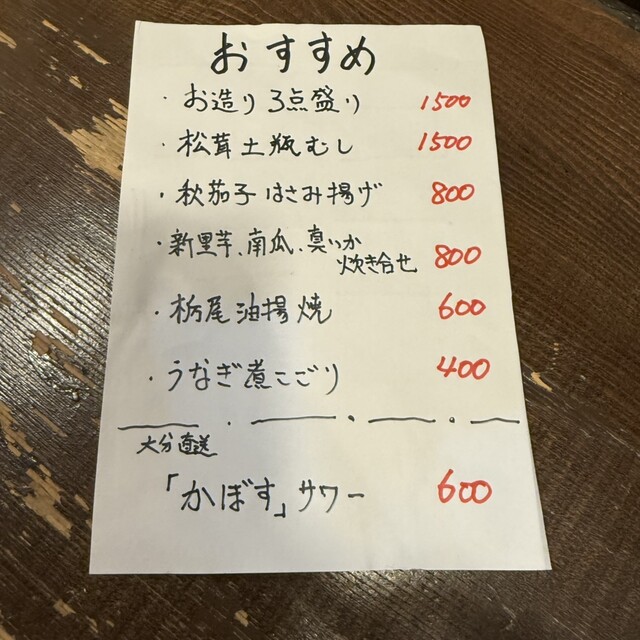 おすすめ
・お造り3点盛り 1500
・松茸土瓶むし 1500
・秋茄子はさみ揚げ 800
・新里芋、南瓜、真いか
炊き合せ 800
・栃尾油揚焼 600
・うなぎ煮こごり 400
大分直送
「かぼす」サワー 600